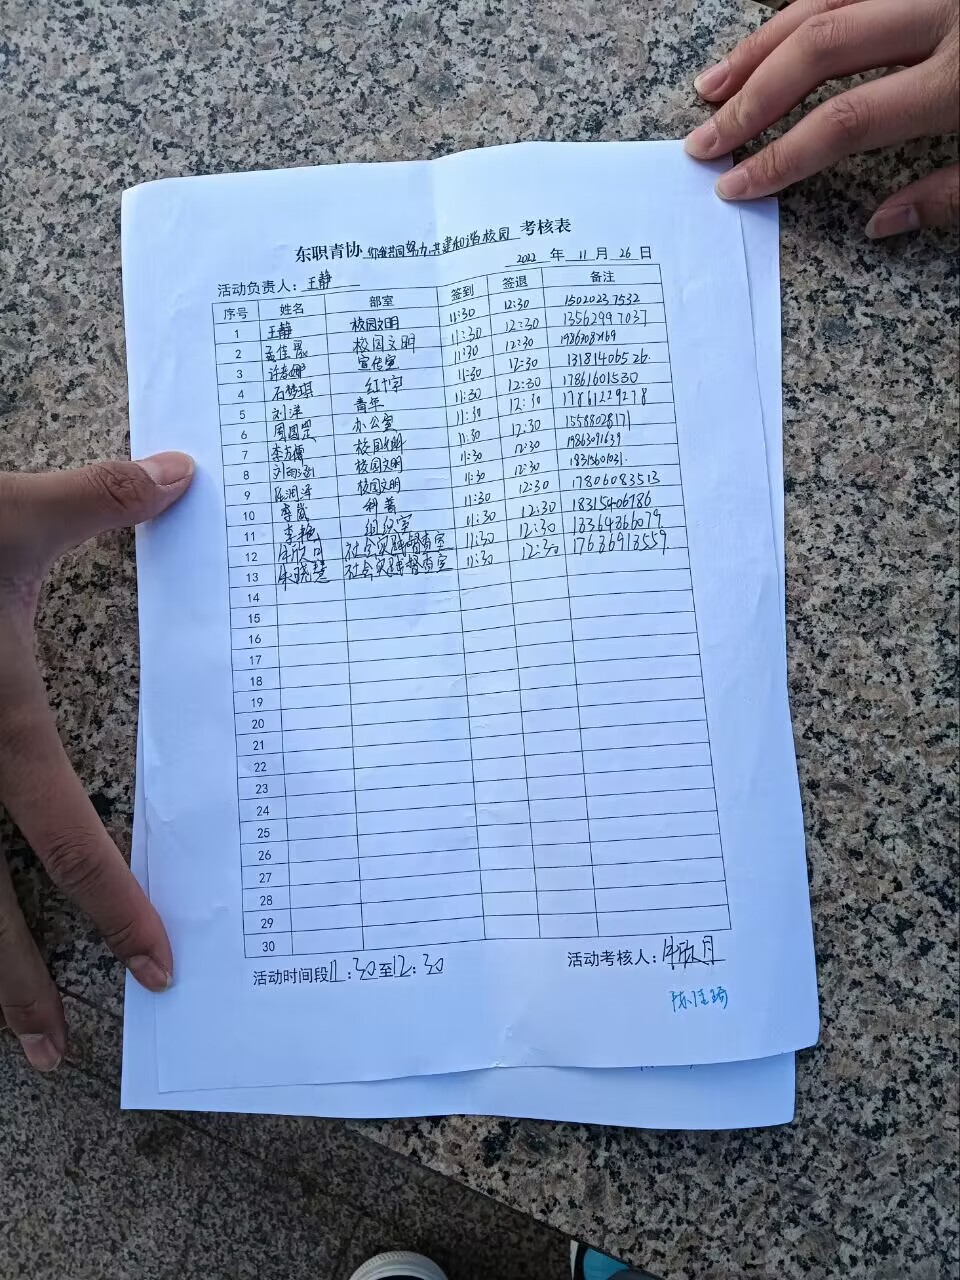 东职青协 你我共同努力,共建和谐校园 考核表
活动负责人：王静 2022 年 11 月 26 日
序号 姓名 部室 签到 签退 备注
1 王静 校园文明 11:30 12:30 15020237532
2 孟佳晟 校园文明 11:30 12:30 13562997037
3 许春娜 宣传室 11:30 12:30
4 石梦琪 红十字 11:30 12:30 13181406526
5 刘洋 青年 11:30 12:30 17861601530
6 周圆罡 办公室 11:30 12:30 17861229278
7 校园文明 11:30 12:30 15588028171
8 刘雨涵 校园文明 11:30 12:30 19863091639
9 陈润泽 校园文明 11:30 12:30
10 李成 科普 11:30 12:30 17806083513
11 李艳 组织室 11:30 12:30 18315406786
12 牟欣月 社会实践督查室 11:30 12:30 18364866079
13 朱晓慧 社会实践督查室 11:30 12:30 17686913559
14
15
16
17
18
19
20
21
22
23
24
25
26
27
28
29
30
活动时间段11:30至12:30 活动考核人：牟欣月
陈佳琦